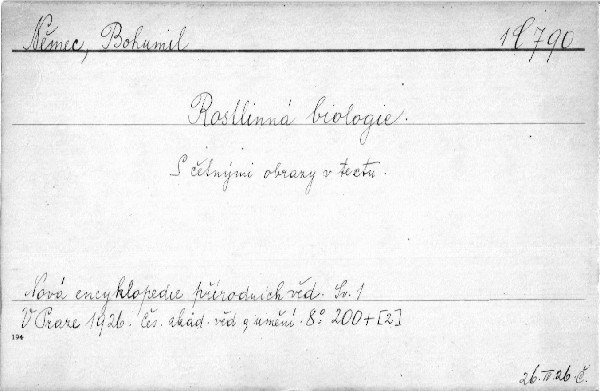 Němec, Bohumil 1 C 790
Rostlinná biologie.
S četnými obrazy v textu.
Nová encyklopedie přírodních věd. Sv. 1
V Praze 1926. Čes. akad. věd a umění. 8° 200+[2]
194
26.II.26.Č.